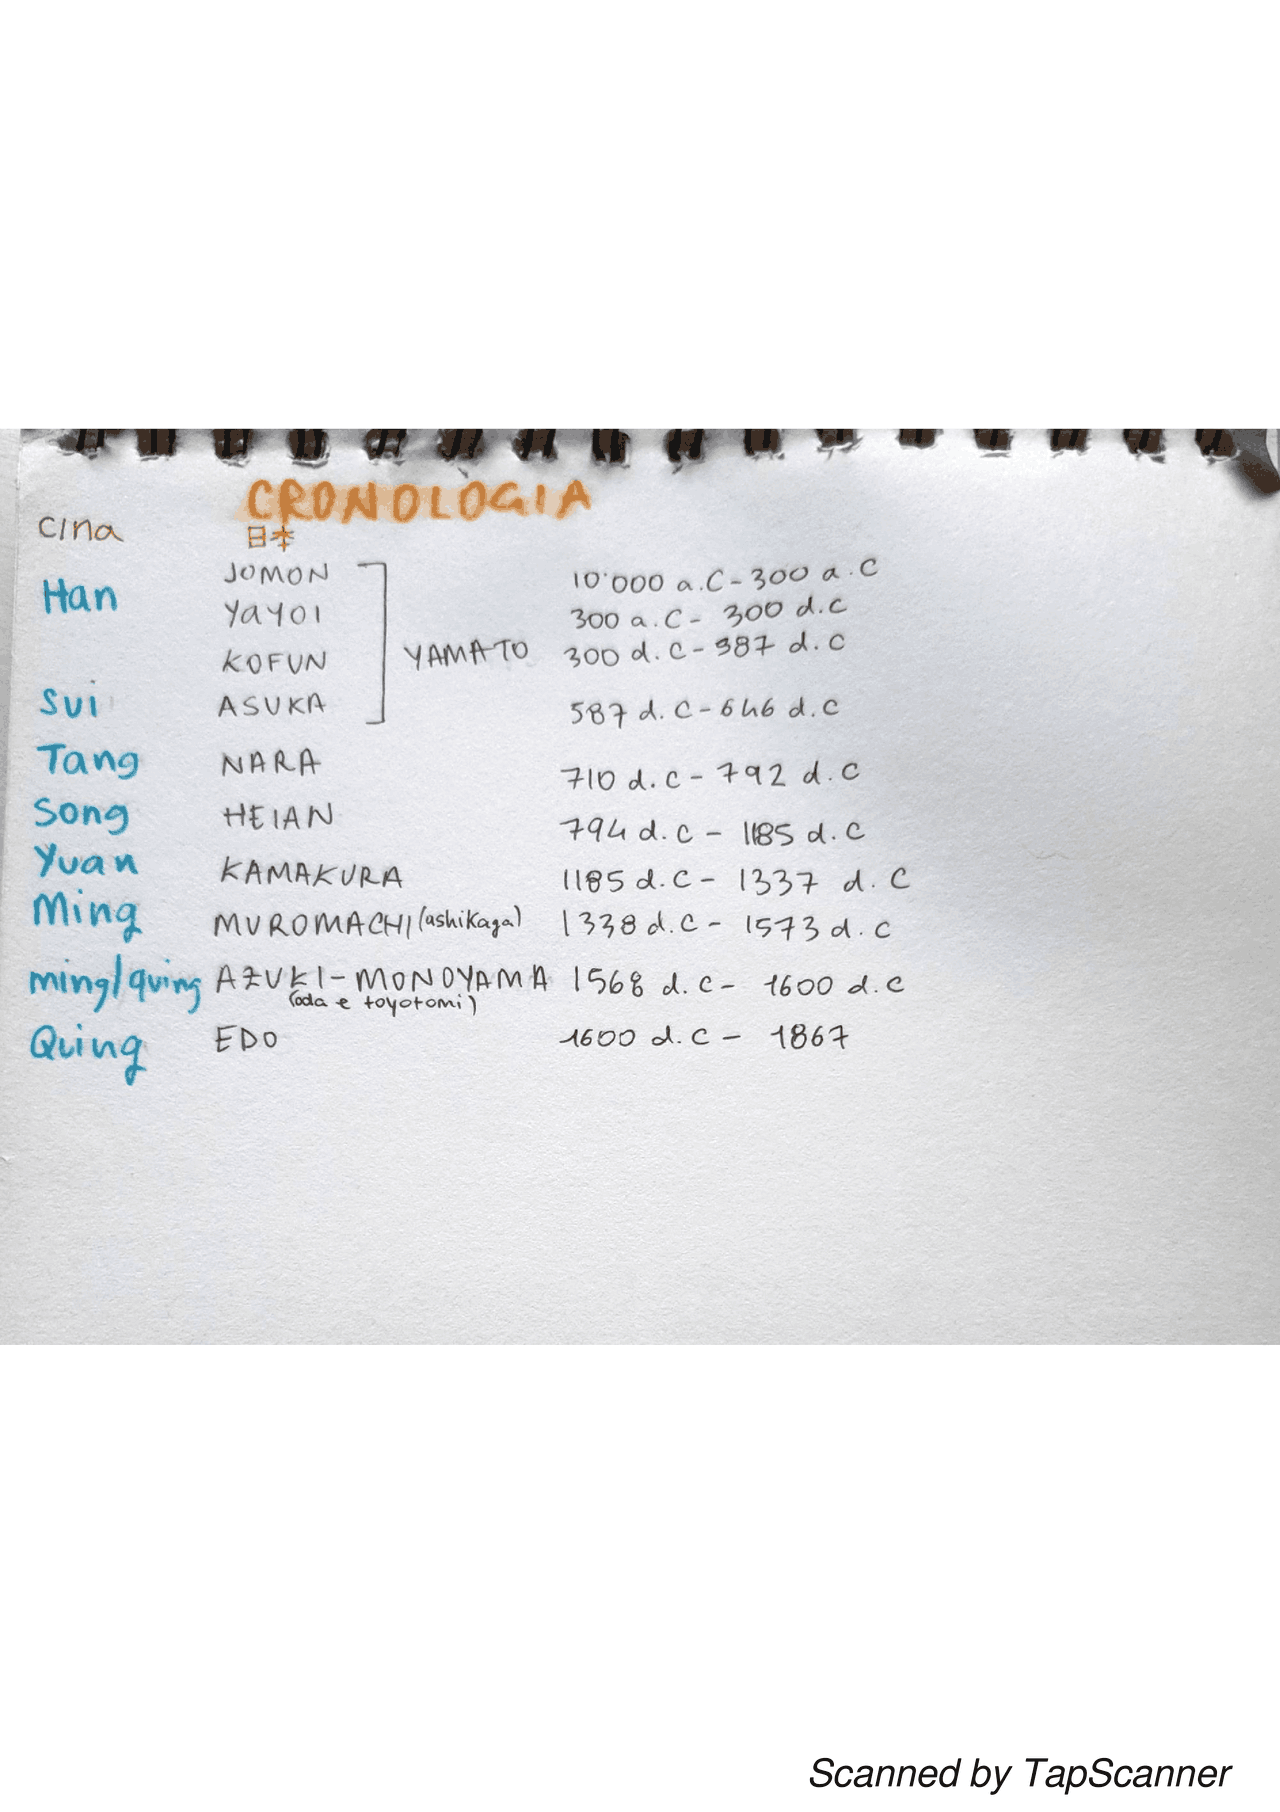 CRONOLOGIA
cina 日本
Han JOMON 10'000 a.C - 300 a.C
YAYOI 300 a.C - 300 d.C
KOFUN YAMATO 300 d.C - 587 d.C
Sui ASUKA 587 d.C - 646 d.C
Tang NARA 710 d.C - 792 d.C
Song HEIAN 794 d.C - 1185 d.C
Yuan KAMAKURA 1185 d.C - 1337 d.C
Ming MUROMACHI (ashikaga) 1338 d.C - 1573 d.C
ming/quing AZUKI-MONOYAMA 1568 d.C - 1600 d.C
(oda e toyotomi)
Quing EDO 1600 d.C - 1867
Scanned by TapScanner